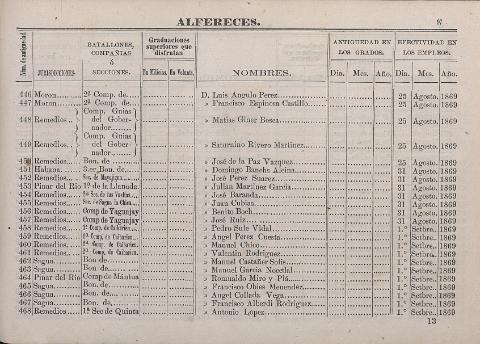 ALFERECES.
BATALLONES, COMPAÑIAS ó SECCIONES.
Graduaciones superiores que disfrutan
ANTIGUEDAD EN LOS GRADOS.
EFECTIVIDAD EN LOS EMPLEOS.
JURISDICCIONES. En Milicias. En Volunts. NOMBRES. Dia. Mes. Año. Dia. Mes. Año.
446 Moron 2ª Comp. de D. Luis Angulo Perez 25 Agosto. 1869
447 Moron 2ª Comp. de » Francisco Espinosa Castillo 25 Agosto. 1869
448 Remedios Comp. Guias del Gobernador » Matias Giner Bosca 25 Agosto. 1869
449 Remedios Comp. Guias del Gobernador » Saturnino Rivero Martinez 25 Agosto. 1869
450 Remedios Bon. de » José de la Paz Vazquez 25 Agosto. 1869
451 Habana 3.er Bon. de » Domingo Bascho Aleina 31 Agosto. 1869
452 Remedios » José Perez Suarez 31 Agosto. 1869
453 Pinar del Rio 1ª de la Llanada » Julian Martinez Garcia 31 Agosto. 1869
454 Remedios » José Baranda 31 Agosto. 1869
455 Remedios » Juan Cubias 31 Agosto. 1869
456 Remedios Comp de Yaguajay » Benito Boch 31 Agosto. 1869
457 Remedios Comp de Yaguajay » José Ruiz 31 Agosto. 1869
458 Remedios » Pedro Sule Vidal 1.º Setbre. 1869
459 Remedios » Angel Perez Cuesta 1.º Setbre. 1869
460 Remedios » Manuel Chico 1.º Setbre. 1869
461 Remedios » Valentin Rodriguez 1.º Setbre. 1869
462 Sagua Bon. de » Manuel Castañer Solis 1.º Setbre. 1869
463 Sagua Bon. de » Manuel Garcia 1.º Setbre. 1869
464 Pinar del Rio Comp de Mántua » Romualdo Miro y Plá 1.º Setbre. 1869
465 Sagua Bon. de » Francisco Obies Menendez 1.º Setbre. 1869
466 Sagua Bon. de » Angel Collada Vega 1.º Setbre. 1869
467 Sagua Bon. de » Francisco Alberdi Rodriguez 1.º Setbre. 1869
468 Remedios 1ª Sec de Quinta » Antonio Lopez 1.º Setbre. 1869
13